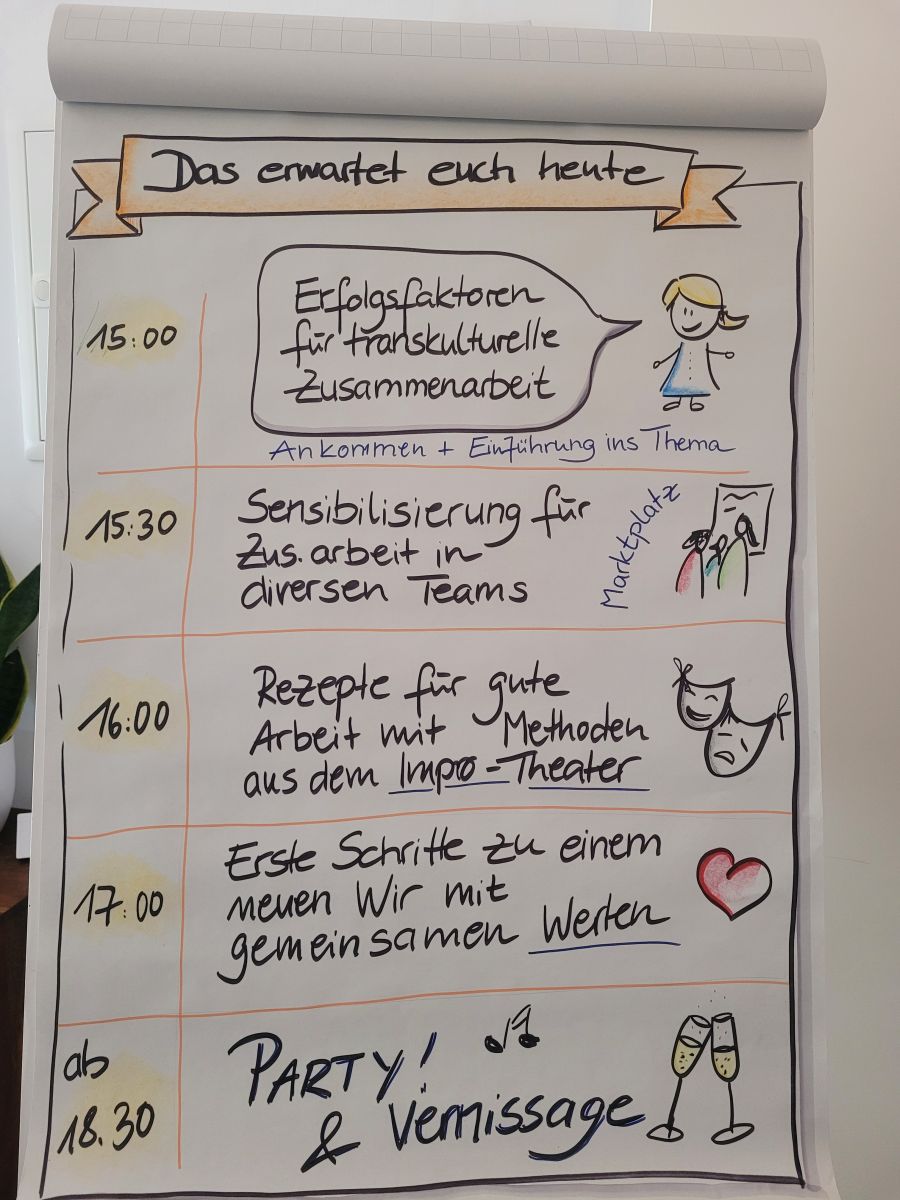 Das erwartet euch heute
15:00
Erfolgsfaktoren
für transkulturelle
Zusammenarbeit
Ankommen + Einführung ins Thema
15:30
Sensibilisierung für
Zus.arbeit in
diversen Teams
Marktplatz
16:00
Rezepte für gute
Arbeit mit Methoden
aus dem Impro-Theater
17:00
Erste Schritte zu einem
neuen Wir mit
gemeinsamen Werten
ab
18.30
PARTY!
& Vernissage